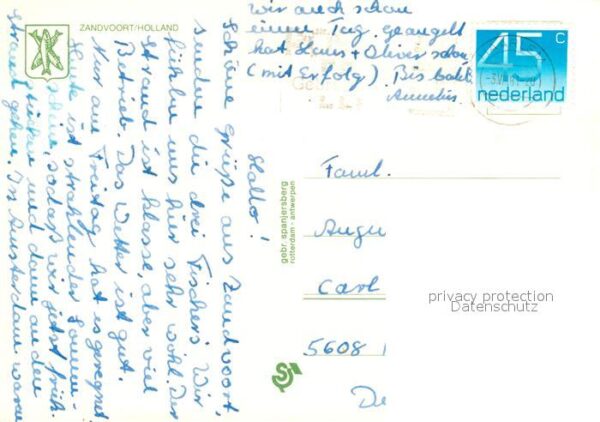 ZANDVOORT/HOLLAND
Hallo!
Schöne Grüße aus Zandvoort,
senden die drei Fischers. Wir
fühlen uns hier sehr wohl. Der
Strand ist klasse, aber viel
Betrieb. Das Wetter ist gut.
Nur am Freitag hat es geregnet
Heute ist strahlender Sonnen-
schein, sodaß wir jetzt früh-
stücken und dann an den
Strand gehen. In Amsterdam waren
wir auch schon
einen Tag. Geangelt
hat Hans + Oliver schon
(mit Erfolg) Bis bald
45 c
nederland
gebr. spanjersberg
rotterdam - antwerpen
Faml.
Augu
Carl
5608
De
privacy protection
Datenschutz